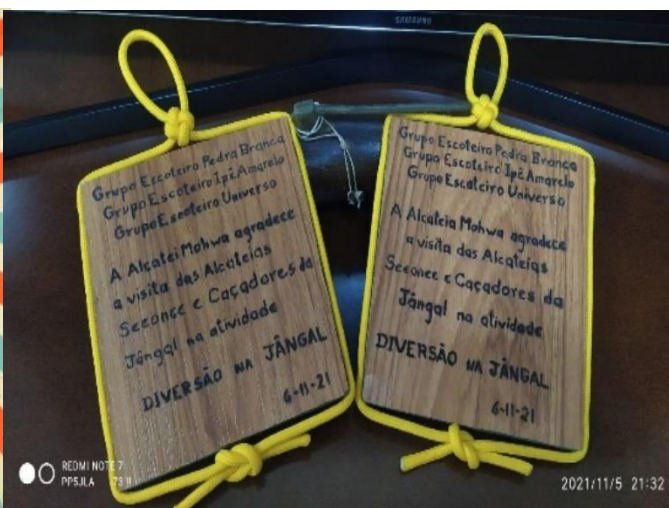 SAMSUNG
Grupo Escoteiro Pedra Branca
Grupo Escoteiro Ipê Amarelo
Grupo Escoteiro Universo
A Alcatei Mohwa agradece
a visita das Alcateias
Seeonee e Caçadores da
Jângal na atividade
DIVERSÃO NA JÂNGAL
6-11-21
Grupo Escoteiro Pedra Branca
Grupo Escoteiro Ipê Amarelo
Grupo Escoteiro Universo
A Alcateia Mohwa agradece
a visita das Alcateias
Seeonee e Caçadores da
Jângal na atividade
DIVERSÃO NA JÂNGAL
6-11-21
REDMI NOTE 7
PPSJLA
2021/11/5 21:32